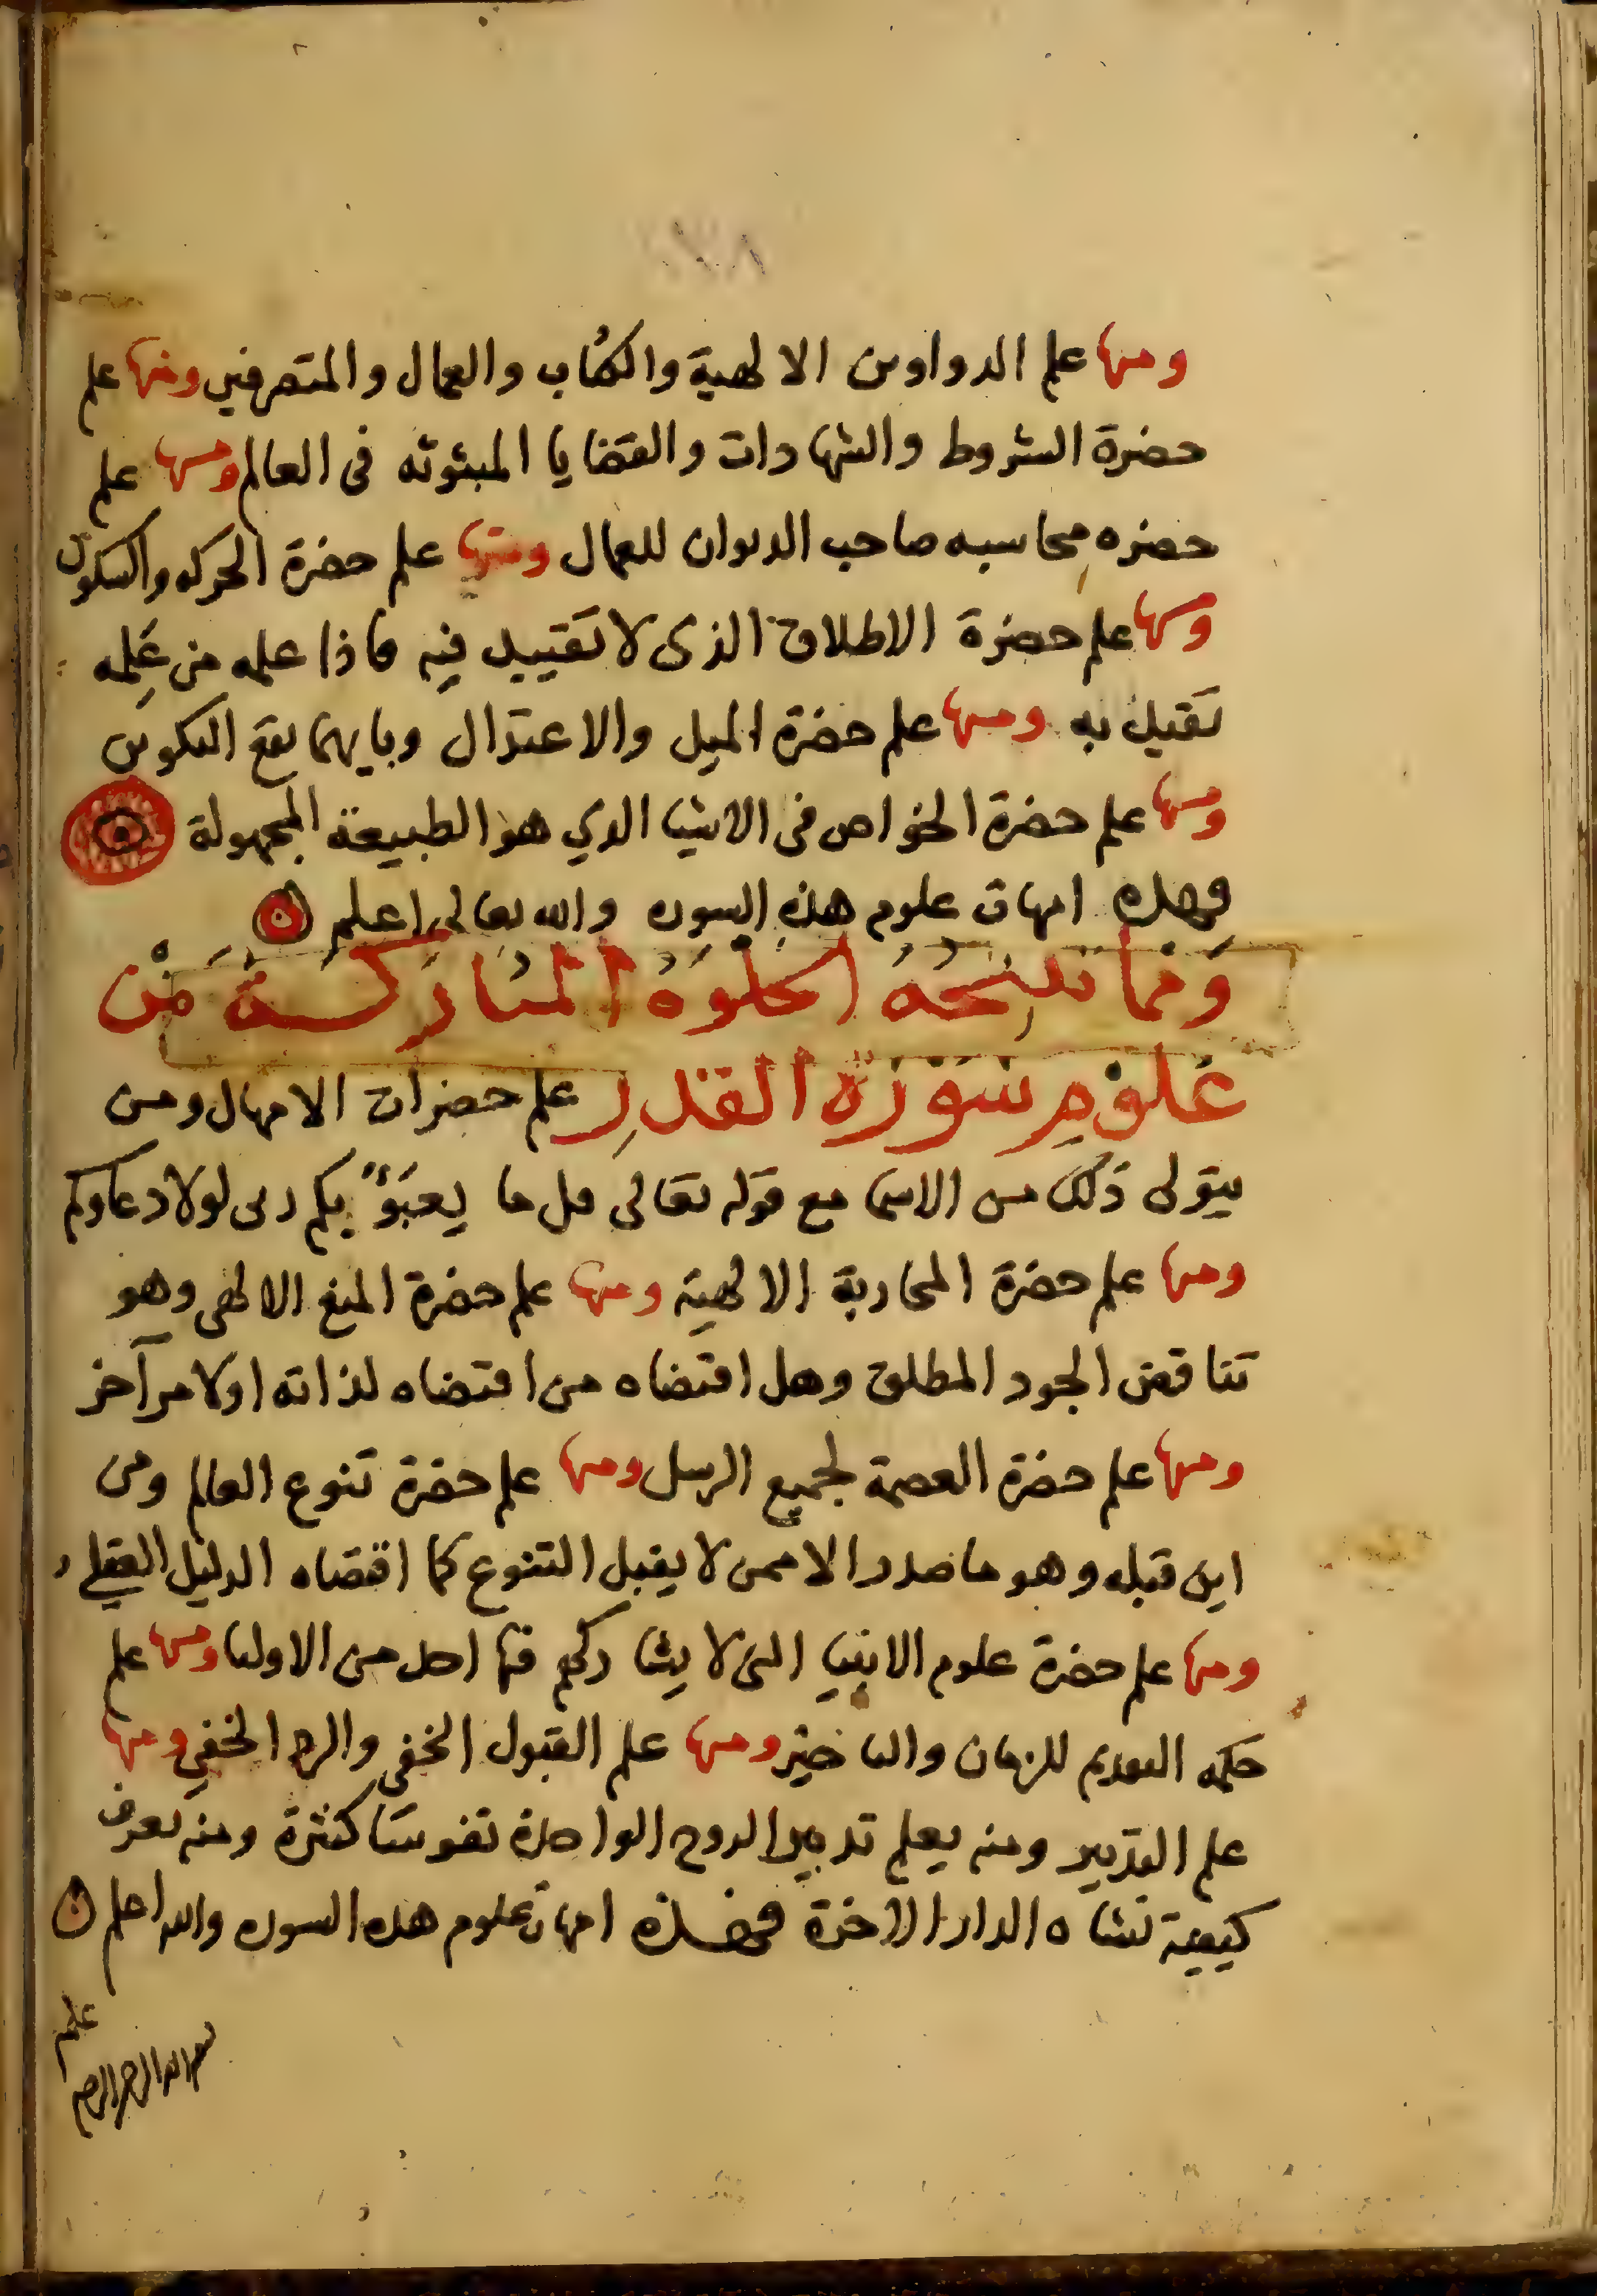 ومنها علم الدواوين الالهية والكتاب والعمال والمتصرفين ومنها علم
حضرة الشروط والشهادات والقضايا المبثوثه فى العالم ومنها علم
حضره محاسبه صاحب الديوان للعمال ومنها علم حضرة الحركه والسكون
ومنها علم حضرة الاطلاق الذى لا تقييد فيه فاذا علمه من علمه
تقيد به ومنها علم حضرة الميل والاعتدال وبايهما يقع التكوين
ومنها علم حضرة الخواص فى الاشيا الدي هو الطبيعة المجهولة
فهذه امهات علوم هذه السوره والله تعالى اعلم
ومما تنتجه الخلوة المباركة من
علوم سورة القدر علم حضرات الامهال ومن
يتولى ذلك من الاسما مع قوله تعالى قل ما يعبؤ بكم ربى لولا دعاوكم
ومنها علم حضرة المحاربة الالهية ومنها علم حضرة المنع الالهى وهو
تناقض الجود المطلق وهل اقتضاه من اقتضاه لذاته او لامر آخر
ومنها علم حضرة العصمة لجميع الرسل ومنها علم حضرة تنوع العالم ومن
اين قبله وهو ما صدر الا ممن لا يقبل التنوع كما اقتضاه الدليل العقلي
ومنها علم حضرة علوم الانبيا التى لا يشاركهم فيها احد من الاوليا ومنها علم
حكمه التقديم للزمان والتاخير ومنها علم القبول الخفى والرد الخفي ومنها
علم التدبير ومنه يعلم تدبير الروح الواحدة نفوسا كثيرة ومنه يعرف
كيفية نشاه الدار الاخرة فهذه امهات علوم هذه السوره والله اعلم
علم
بسم الله الرحمن الرحيم